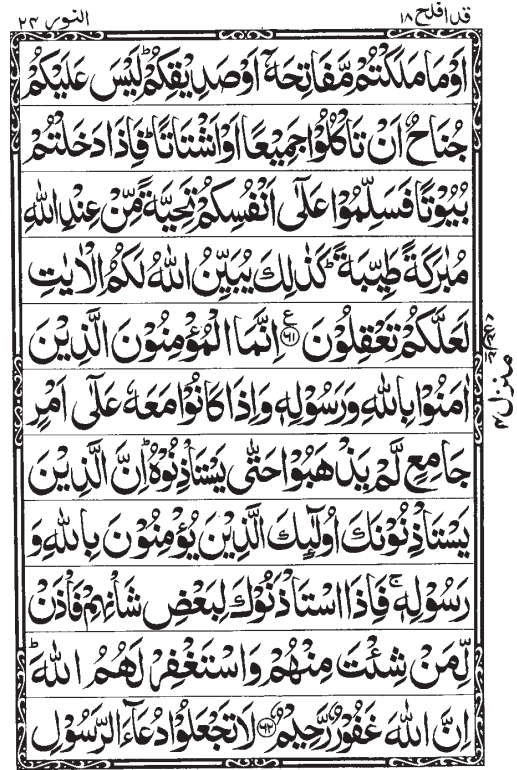 قد افلح ١٨
النور ٢٤
اَوْ مَا مَلَكْتُمْ مَّفَاتِحَهٗۤ اَوْ صَدِیْقِكُمْؕ لَیْسَ عَلَیْكُمْ
جُنَاحٌ اَنْ تَاْكُلُوْا جَمِیْعًا اَوْ اَشْتَاتًاؕ فَاِذَا دَخَلْتُمْ
بُیُوْتًا فَسَلِّمُوْا عَلٰۤى اَنْفُسِكُمْ تَحِیَّةً مِّنْ عِنْدِ اللّٰهِ
مُبٰرَكَةً طَیِّبَةًؕ كَذٰلِكَ یُبَیِّنُ اللّٰهُ لَكُمُ الْاٰیٰتِ
لَعَلَّكُمْ تَعْقِلُوْنَ ع ٦١ اِنَّمَا الْمُؤْمِنُوْنَ الَّذِیْنَ
اٰمَنُوْا بِاللّٰهِ وَ رَسُوْلِهٖ وَ اِذَا كَانُوْا مَعَهٗ عَلٰۤى اَمْرٍ
جَامِعٍ لَّمْ یَذْهَبُوْا حَتّٰى یَسْتَاْذِنُوْهُؕ اِنَّ الَّذِیْنَ
یَسْتَاْذِنُوْنَكَ اُولٰٓىِٕكَ الَّذِیْنَ یُؤْمِنُوْنَ بِاللّٰهِ وَ
رَسُوْلِهٖۚ فَاِذَا اسْتَاْذَنُوْكَ لِبَعْضِ شَاْنِهِمْ فَاْذَنْ
لِّمَنْ شِئْتَ مِنْهُمْ وَ اسْتَغْفِرْ لَهُمُ اللّٰهَؕ
اِنَّ اللّٰهَ غَفُوْرٌ رَّحِیْمٌ ٦٢ لَا تَجْعَلُوْا دُعَآءَ الرَّسُوْلِ
منزل ٤